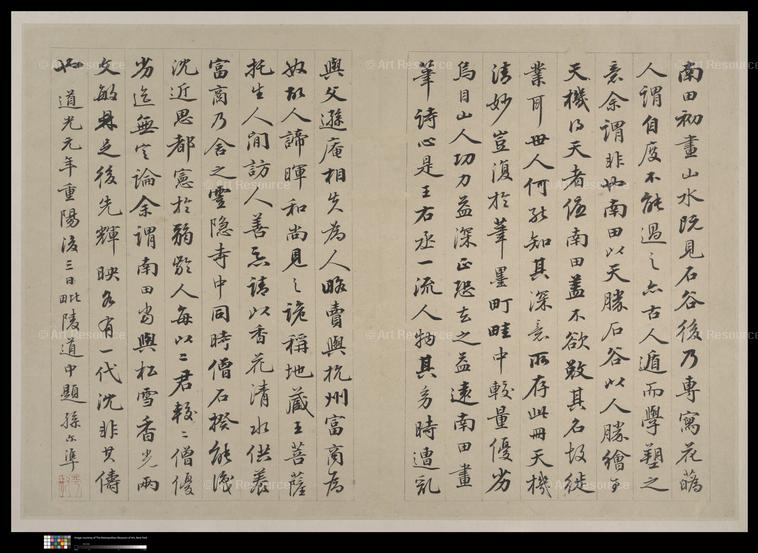 南田初畫山水既見石谷後乃專寫花蘤
人謂自度不能過之亦古人遁而學塑之
意余謂非也南田以天勝石谷以人勝繪至
天機得天者優南田蓋不欲敵其名故徙
業耳世人何能知其深意所存此冊天機
清妙豈復於筆墨町畦中較量優劣
烏目山人功力益深正恐去之益遠南田畫
筆詩心是王右丞一流人物其多時遭亂
與父遜庵相失為人略賣與杭州富商為
奴故人諦暉和尚見之詭稱地藏王菩薩
托生人間訪人善惡請以香花清水供養
富商乃舍之靈隱寺中同時僧石揆能識
沈近思都憲於弱齡人每以二君較二僧優
劣迄無定論余謂南田當與松雪香光兩
文敏畢之後先輝映各有一代沈非其儔
也
道光元年重陽後三日毗陵道中題孫尒準
© Art Resource
Image courtesy of The Metropolitan Museum of Art, New York